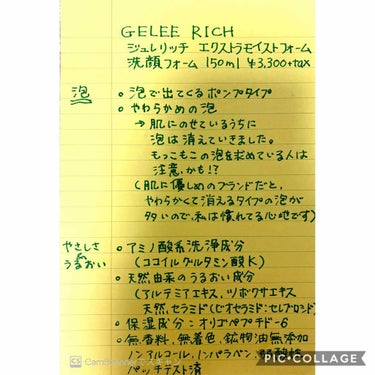 GELEE RICH
ジュレリッチ エクストラモイストフォーム
洗顔フォーム 150ml ¥3,300+tax
泡
○ 泡で出てくるポンプタイプ
○ やわらかめの泡
→ 肌にのせているうちに
泡は消えていきました。
もっこもこの泡を求めている人は
注意、かも!?
(肌に優しめのブランドだと、
やわらかくて消えるタイプの泡が
多いので、私は慣れてる心地です)
やさしさ
うるおい
○ アミノ酸系洗浄成分
(ココイルグルタミン酸K)
○ 天然由来のうるおい成分
(アルテミアエキス、ツボクサエキス
天然セラミド(ビオセラミド:セレブロシド)
○ 保湿成分:オリゴペプチド-6
○ 無香料、無着色、鉱物油無添加
ノンアルコール、ノンパラベン、弱酸性
パッチテスト済
CamScannerでスキャン
PIC•COLLAGE